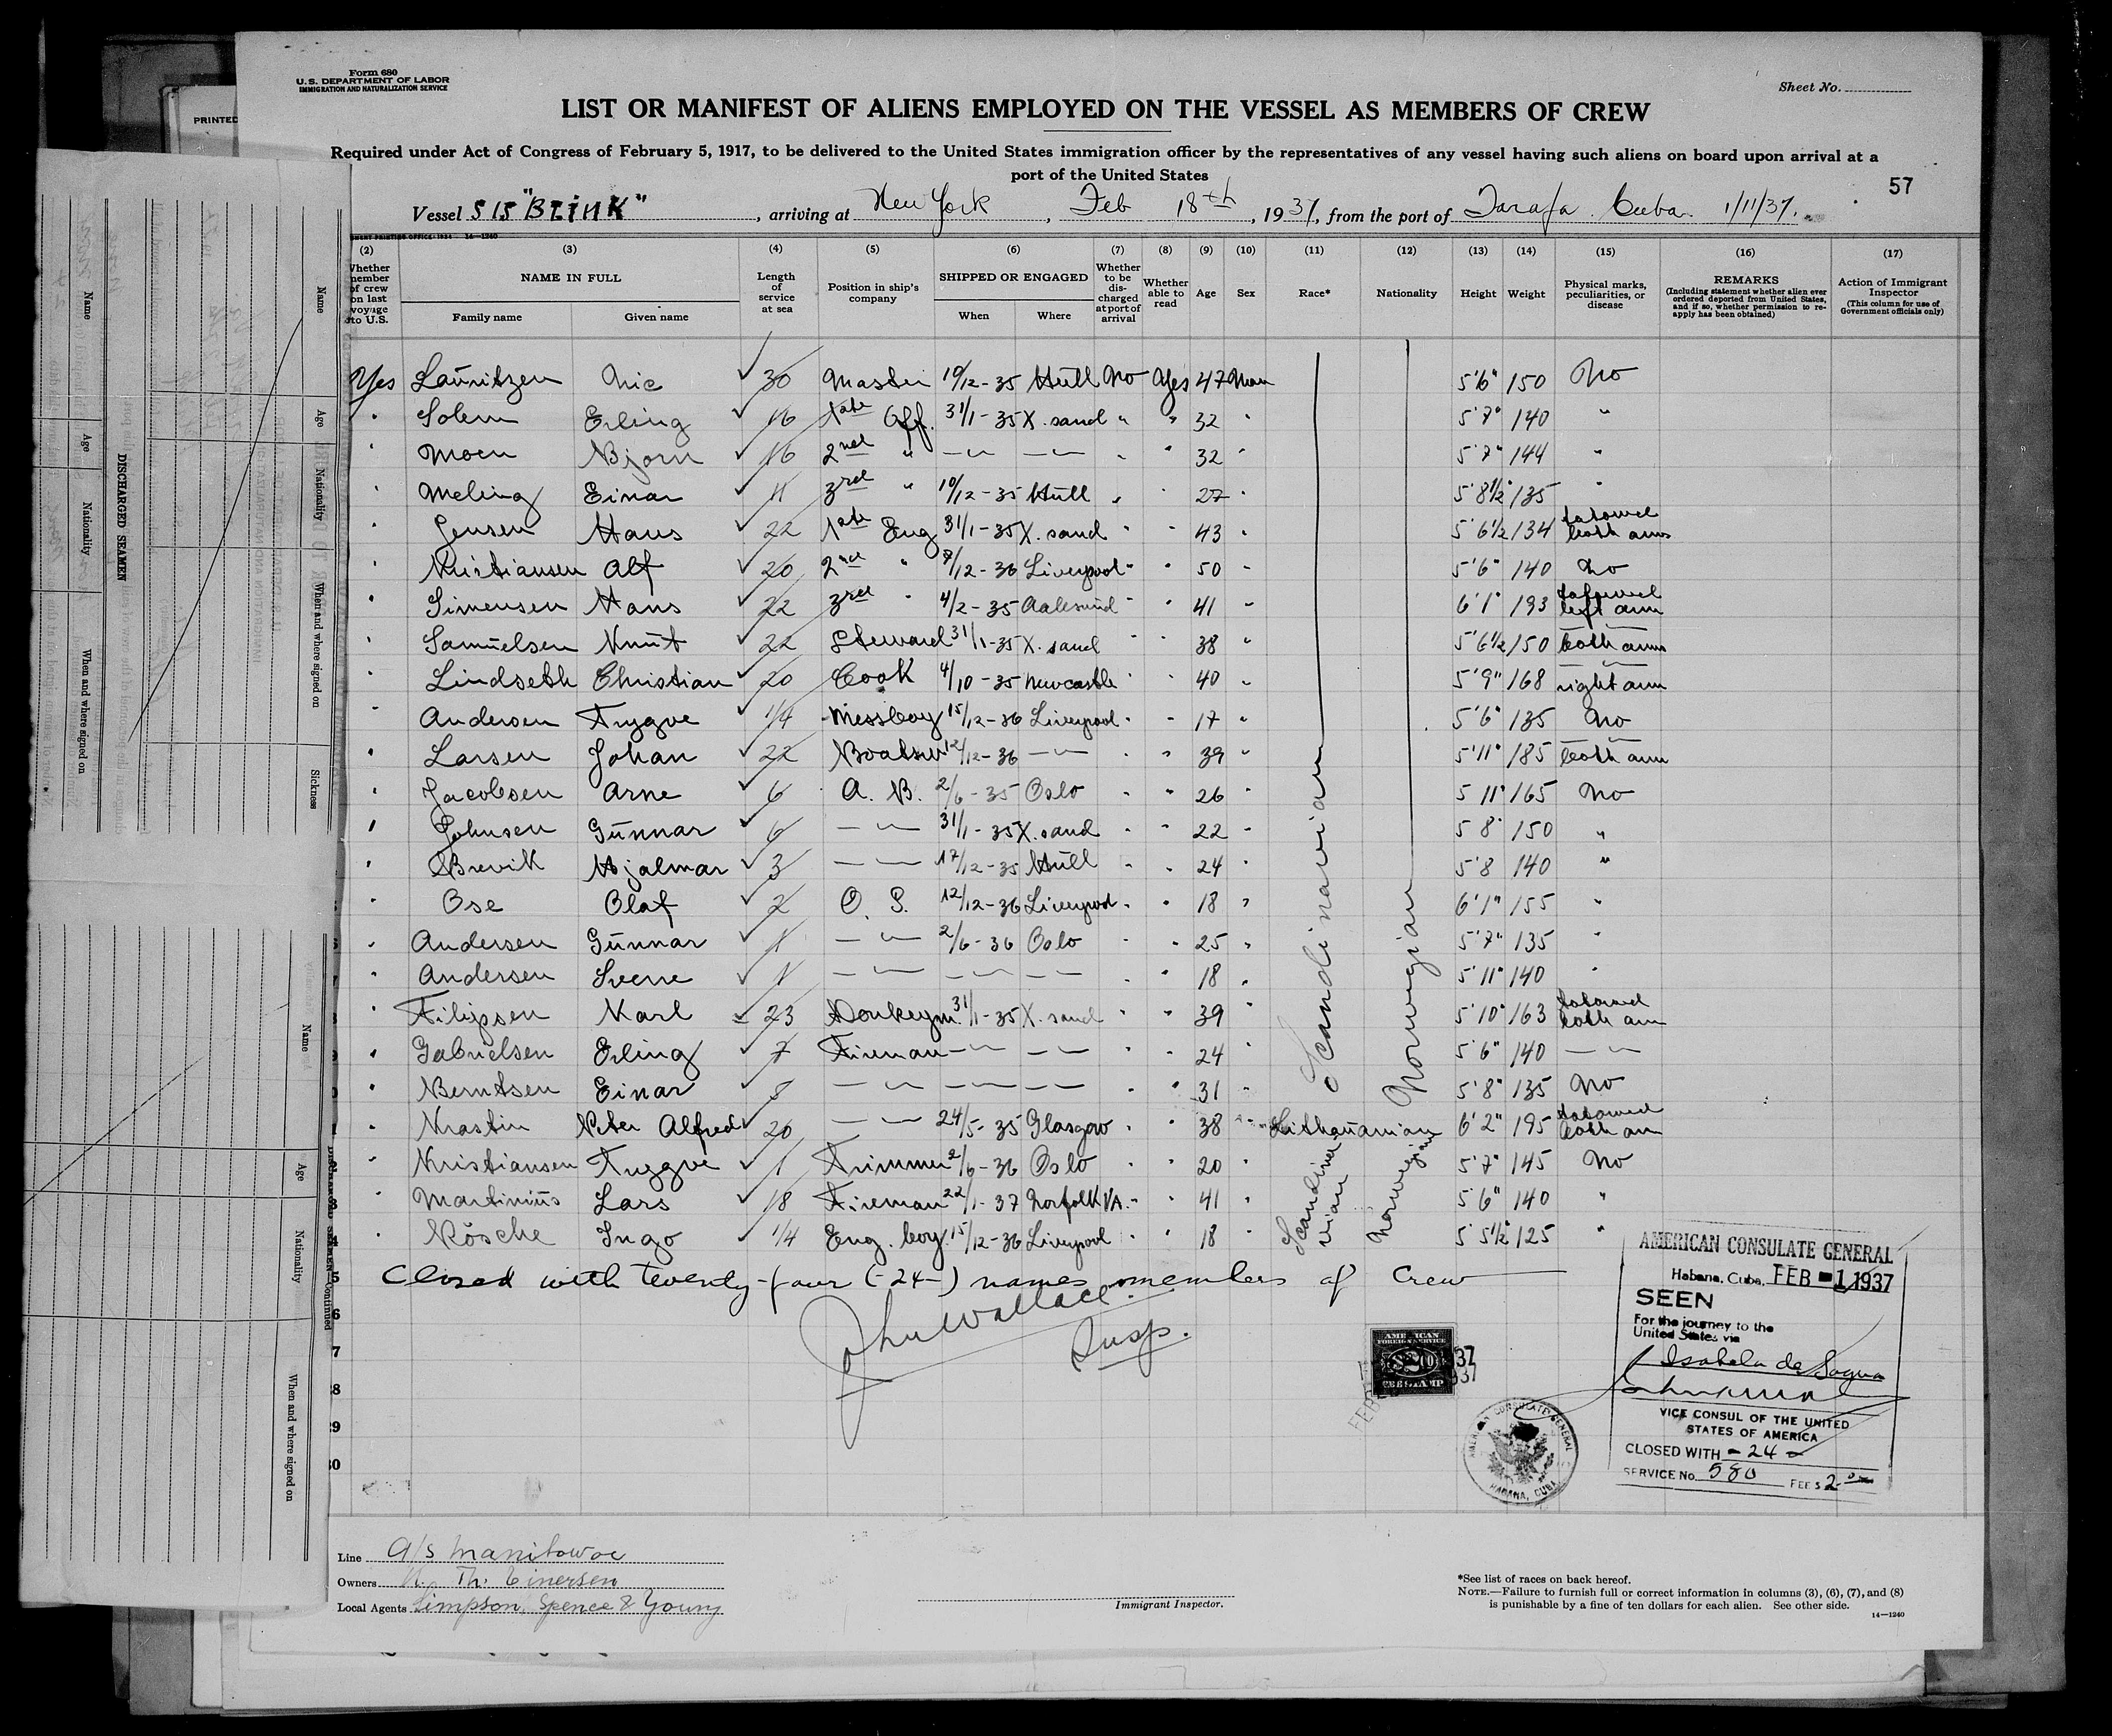 Form 680
U.S. DEPARTMENT OF LABOR
IMMIGRATION AND NATURALIZATION SERVICE
Sheet No.
LIST OR MANIFEST OF ALIENS EMPLOYED ON THE VESSEL AS MEMBERS OF CREW
Required under Act of Congress of February 5, 1917, to be delivered to the United States immigration officer by the representatives of any vessel having such aliens on board upon arrival at a
port of the United States
57
Vessel S/S "BLINK", arriving at New York, Feb 18th, 1937, from the port of Tarafa Cuba 1/11/37.
(2) (3) (4) (5) (6) (7) (8) (9) (10) (11) (12) (13) (14) (15) (16) (17)
Whether member of crew on last voyage to U.S.
NAME IN FULL
Family name Given name
Length of service at sea
Position in ship's company
SHIPPED OR ENGAGED
When Where
Whether to be discharged at port of arrival
Whether able to read
Age
Sex
Race*
Nationality
Height
Weight
Physical marks, peculiarities, or disease
REMARKS
(Including statement whether alien ever ordered deported from United States, and if so, whether permission to reapply has been obtained)
Action of Immigrant Inspector
(This column for use of Government officials only)
Yes Lauritzen Nic 30 Master 10/12-35 Hull No Yes 47 Man 5'6" 150 No
" Solem Erling 16 1ste Off. 31/1-35 X.sand " " 32 " 5'7" 140 "
" Moen Bjorn 16 2nd " — " — — " — " " 32 " 5'7" 144 "
" Meling Einar 11 3rd " 10/12-35 Hull " " 27 " 5'8½ 135 "
" Jensen Hans 22 1ste Eng 31/1-35 X.sand " " 43 " 5'6½ 134 tatowed both arms
" Kristiansen Alf 20 2nd " 7/12-36 Liverpool " " 50 " 5'6" 140 No
" Simensen Hans 22 3rd " 4/2-35 Aalesund " " 41 " 6'1" 193 tatowed left arm
" Samuelsen Knut 22 Steward 31/1-35 X.sand " " 38 " 5'6½ 150 — " — both arms
" Lindseth Christian 20 Cook 4/10-35 Newcastle " " 40 " 5'9" 168 — " — right arm
" Andersen Trygve 1/4 Messboy 15/12-36 Liverpool " " 17 " 5'6" 135 No
" Larsen Johan 22 Boatsw 12/12-36 — " — " " 39 " 5'11" 185 — " — both arm
" Jacobsen Arne 6 A. B. 2/6-35 Oslo " " 26 " 5 11" 165 No
" Johnsen Gunnar 6 — " — 31/1-35 X.sand " " 22 " 5 8" 150 "
" Brevik Hjalmar 3 — " — 17/12-35 Hull " " 24 " 5'8 140 "
" Ose Olaf 2 O. S. 12/12-36 Liverpool " " 18 " 6'1" 155 "
" Andersen Gunnar 1 — " — 2/6-36 Oslo " " 25 " 5'7" 135 "
" Andersen Sverre 1 — " — — " — — " — " " 18 " 5'11" 140 "
" Filipsen Karl 23 Donkeym. 31/1-35 X.sand " " 39 " 5'10" 163 tatowed both arm
" Gabrielsen Erling 7 Fireman — " — — " — " " 24 " 5'6" 140 — " —
" Berntsen Einar 8 — " — — " — — " — " " 31 " 5'8" 135 No
" Krastin Peter Alfred 20 — " — 24/5-35 Glasgow " " 38 " Lithauanian 6'2" 195 tatowed both arm
" Kristiansen Trygve 1 Trimmer 2/6-36 Oslo " " 20 " 5'7" 145 No
" Martinius Lars 18 Fireman 22/1-37 Norfolk VA. " " 41 " 5'6" 140 "
" Kösche Ingo 1/4 Eng. boy. 15/12-36 Liverpool " " 18 " 5 5½ 125 "
Scandinavian
Norwegian
Scandinavian
Norwegian
Closed with twenty-four (-24-) names members of Crew
John Wallace
Insp.
AMERICAN CONSULATE GENERAL
Habana, Cuba, FEB - 1 1937
SEEN
For the journey to the
United States via
Isabela de Sagua
VICE CONSUL OF THE UNITED
STATES OF AMERICA
CLOSED WITH - 24 -
SERVICE No. 580 FEE $ 2.00
AMERICAN
FOREIGN SERVICE
FEE STAMP
AMERICAN CONSULATE GENERAL
HABANA, CUBA
Line A/S Manitowoc
Owners Th. Einersen
Local Agents Simpson, Spence & Young
Immigrant Inspector.
*See list of races on back hereof.
NOTE.—Failure to furnish full or correct information in columns (3), (6), (7), and (8)
is punishable by a fine of ten dollars for each alien. See other side.
14—1240
PRINTED
DISCHARGED SEAMEN
Name
Age
Nationality
When and where signed on
Sickness
Name
Age
Nationality
When and where signed on